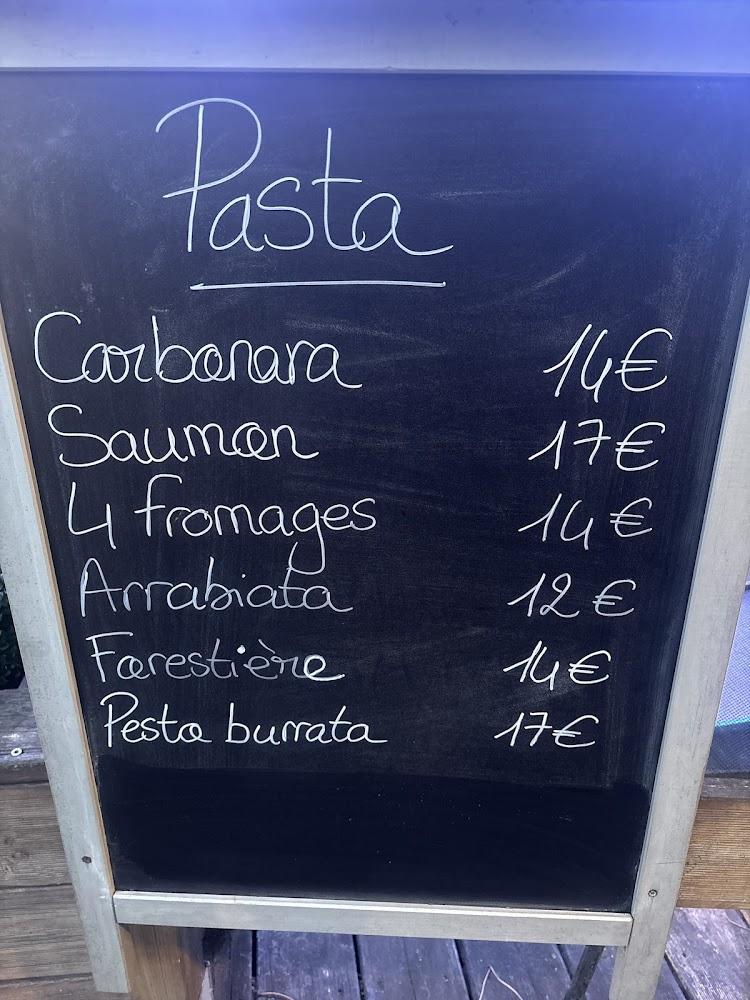 Pasta
Carbonara 14€
Saumon 17€
4 fromages 14€
Arrabiata 12€
Forestière 14€
Pesto burrata 17€